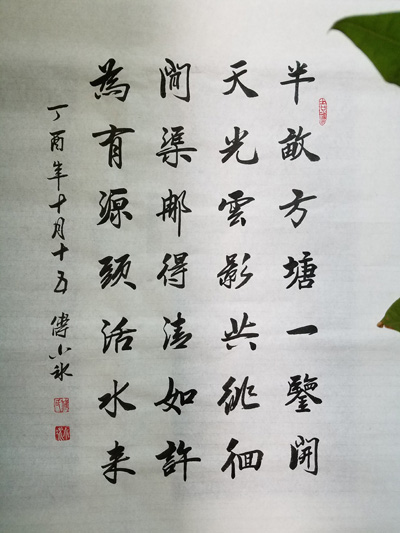 半畝方塘一鑒開
天光雲影共徘徊
問渠那得清如許
為有源頭活水来
丁酉年十月十五 傅小冰